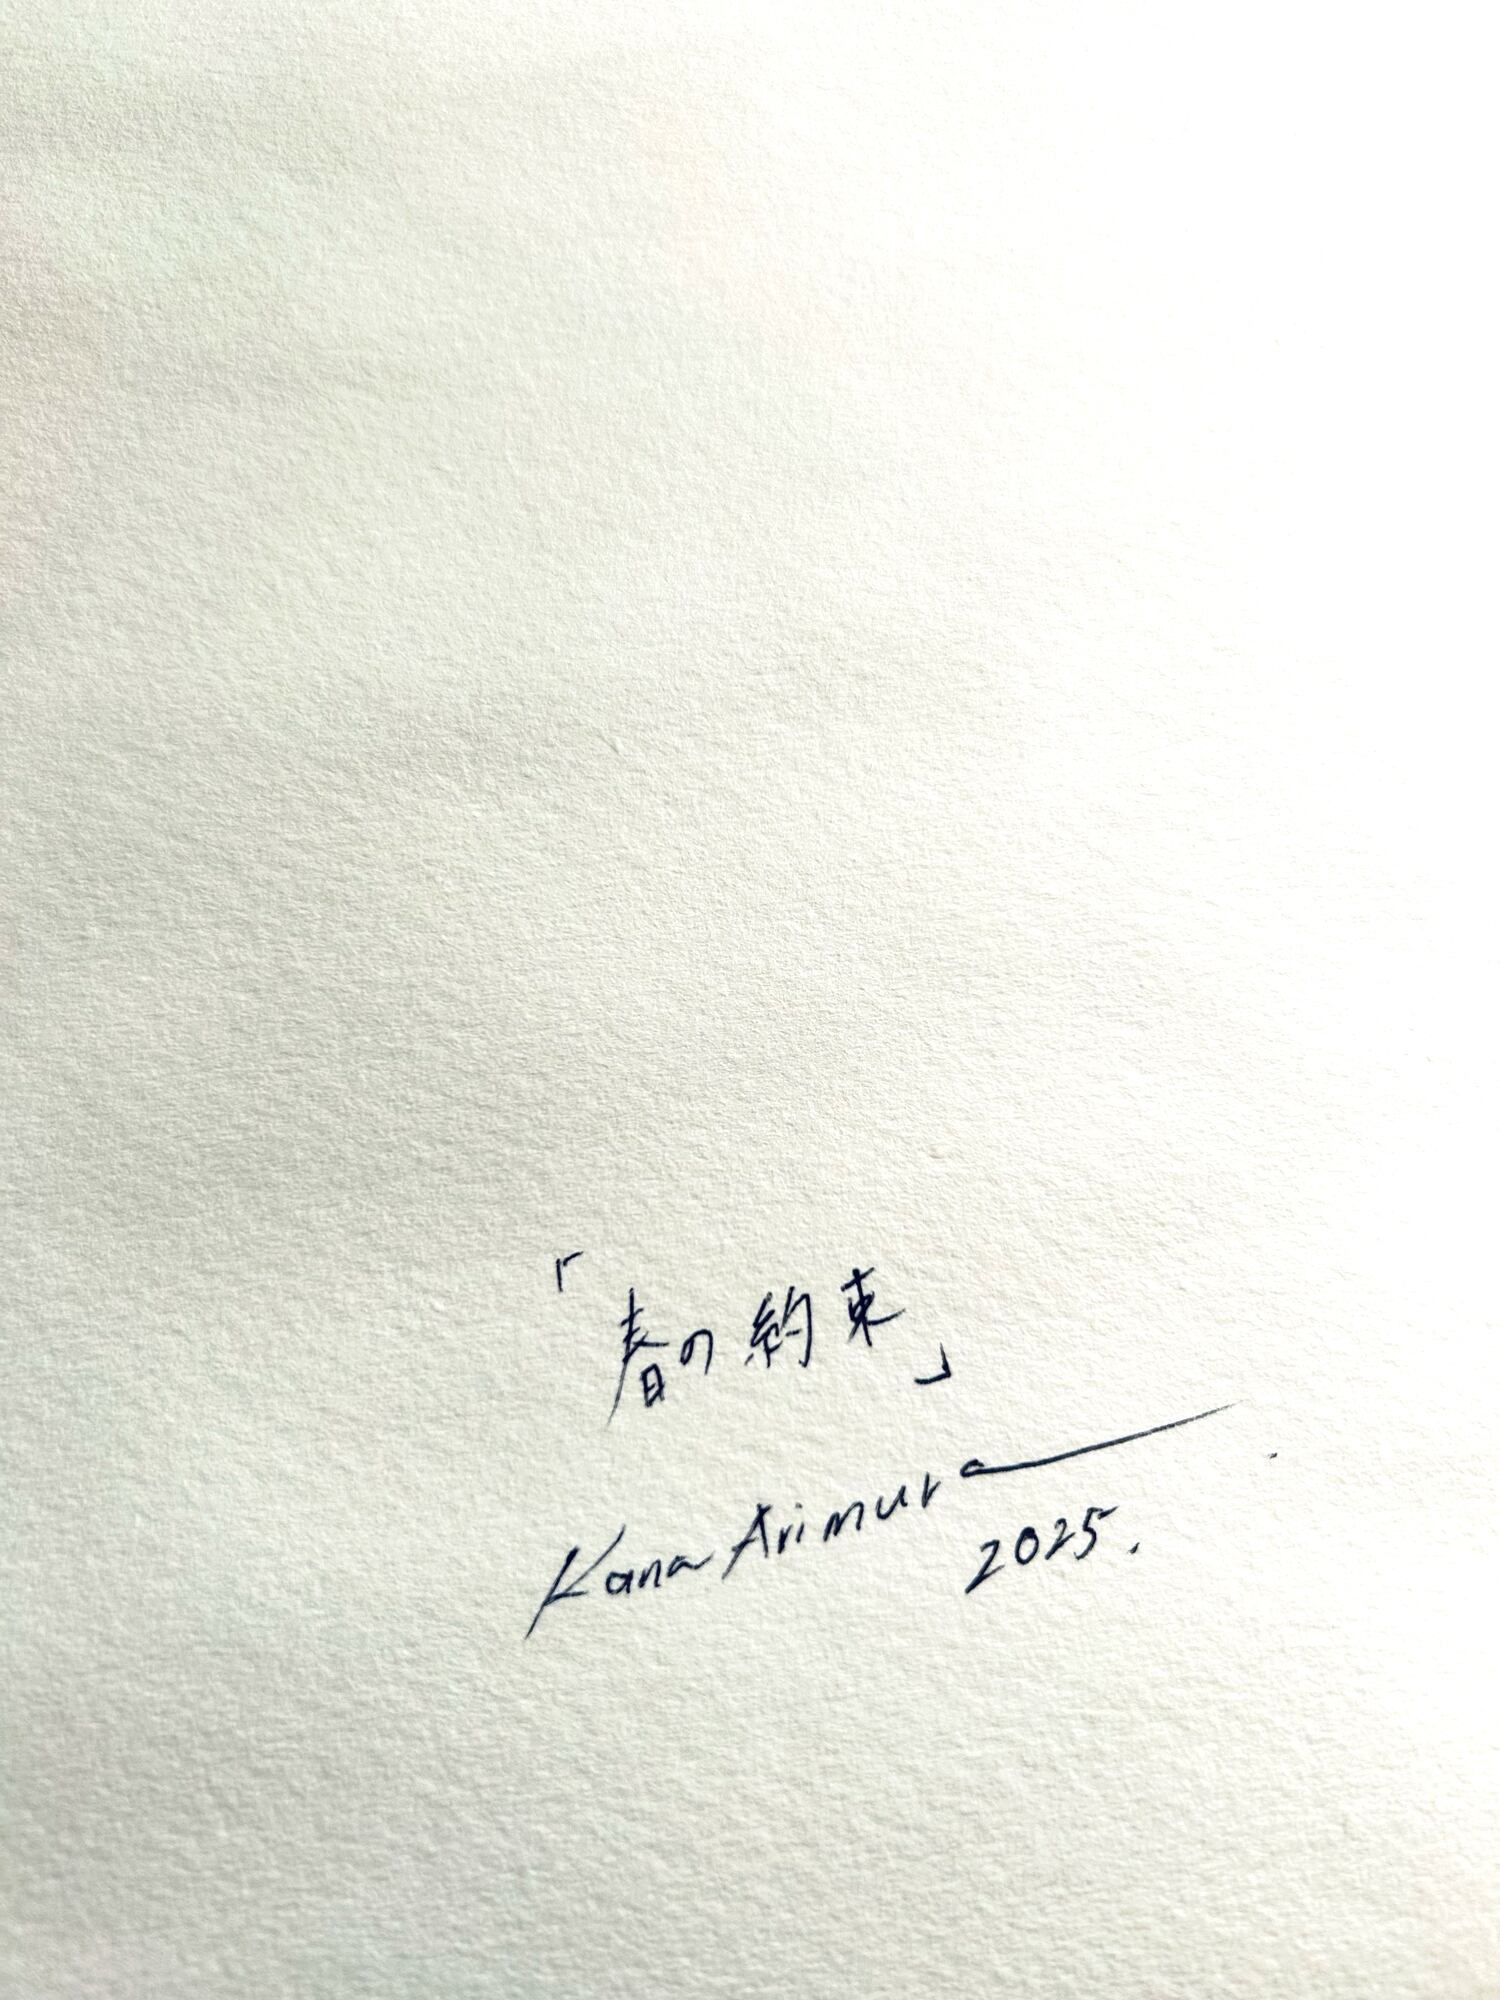 「春の約束」
Kana Arimura
2025.